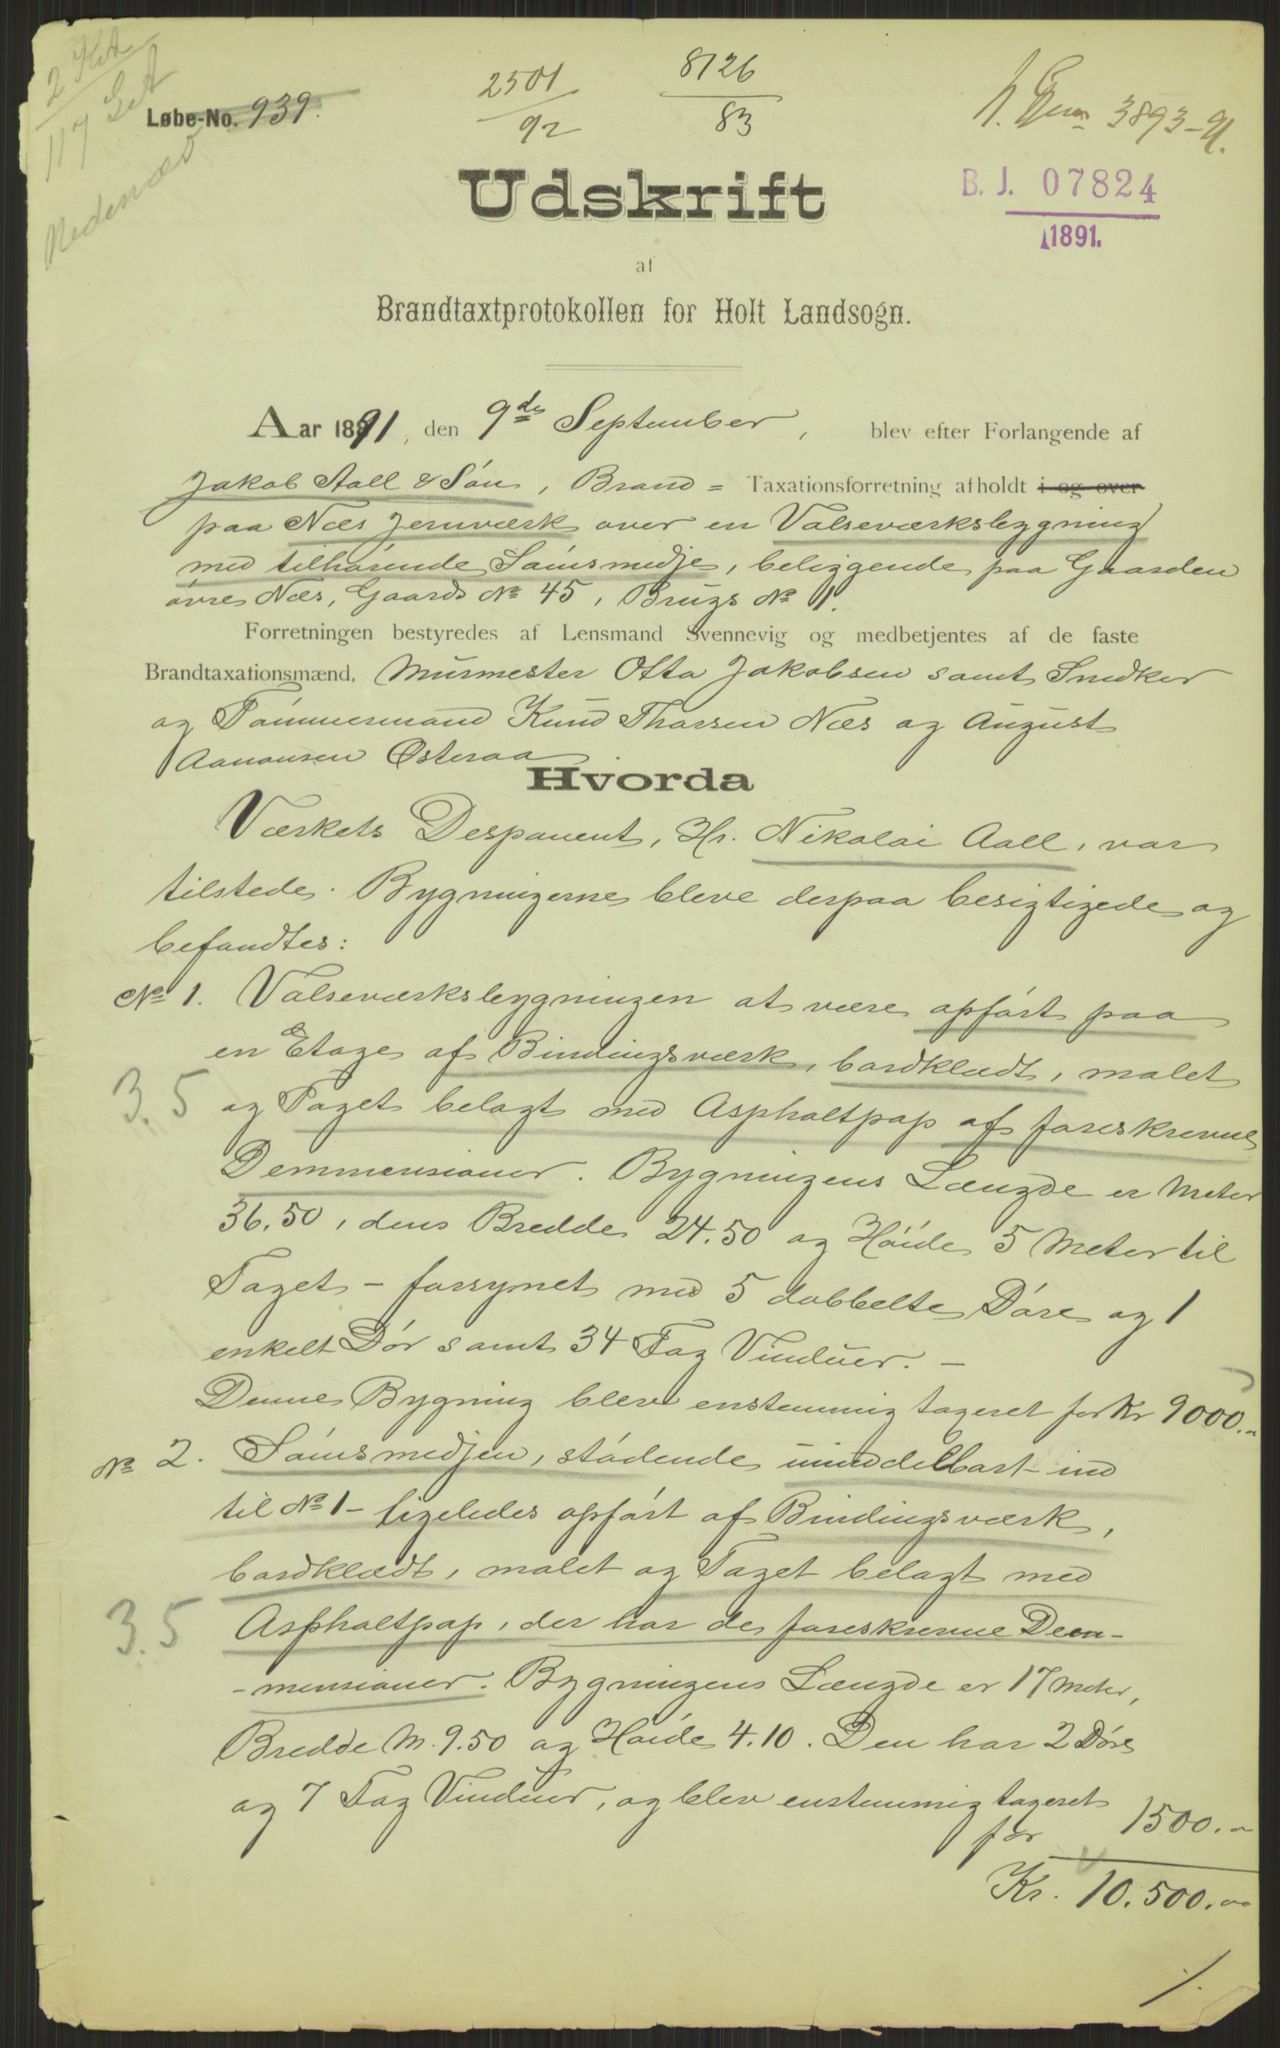 2 Kct
117 Sct
Nedenæs
Løbe-No. 939.
2501
92
8126
83
3893-91.
B. J. 07824
1891.
Udskrift
af
Brandtaxtprotokollen for Holt Landsogn.
Aar 1891, den 9de September, blev efter Forlangende af
Jakob Aall & Søn, Brand= Taxationsforretning afholdt i og over
paa Næs Jernværk over en Valseværksbygning
med tilhørende Sømsmedje, beliggende paa Gaarden
øvre Næs, Gaards No 45, Brugs No 1.
Forretningen bestyredes af Lensmand Svennevig og medbetjentes af de faste
Brandtaxationsmænd, Murmester Otto Jakobsen samt Snedker
og Tømmermand Knud Thorsen Næs og August
Aanonsen Østeraa
Hvorda
Værkets Desponent, Hr. Nikolai Aall, var
tilstede. Bygningerne bleve derpaa besigtigede og
befandtes:
No 1. Valseværksbygningen at være opført paa
en Etage af Bindingsværk, bordklædt, malet
3.5 og Taget belagt med Asphaltpap af foreskrevne
Demmensioner. Bygningens Længde er Meter
36.50, dens Bredde 24.50 og Høide 5 Meter til
Taget - forsynet med 5 dobbelte Døre og 1
enkelt Dør samt 34 Fag Vinduer. -
Denne Bygning blev enstemmig taxeret for Kr 9000.-
No 2. Sømsmedjen, stødende umiddelbart ind
til No 1 - ligeledes opført af Bindingsværk,
bordklædt, malet og Taget belagt med
3.5 Asphaltpap, der har de foreskrevne Dem-
-mensioner. Bygningens Længde er 17 Meter,
Bredde M. 9.50 og Høide 4.10. Den har 2 Døre
og 7 Fag Vinduer, og blev enstemmig taxeret
for 1500.-
Kr. 10.500.-
1.